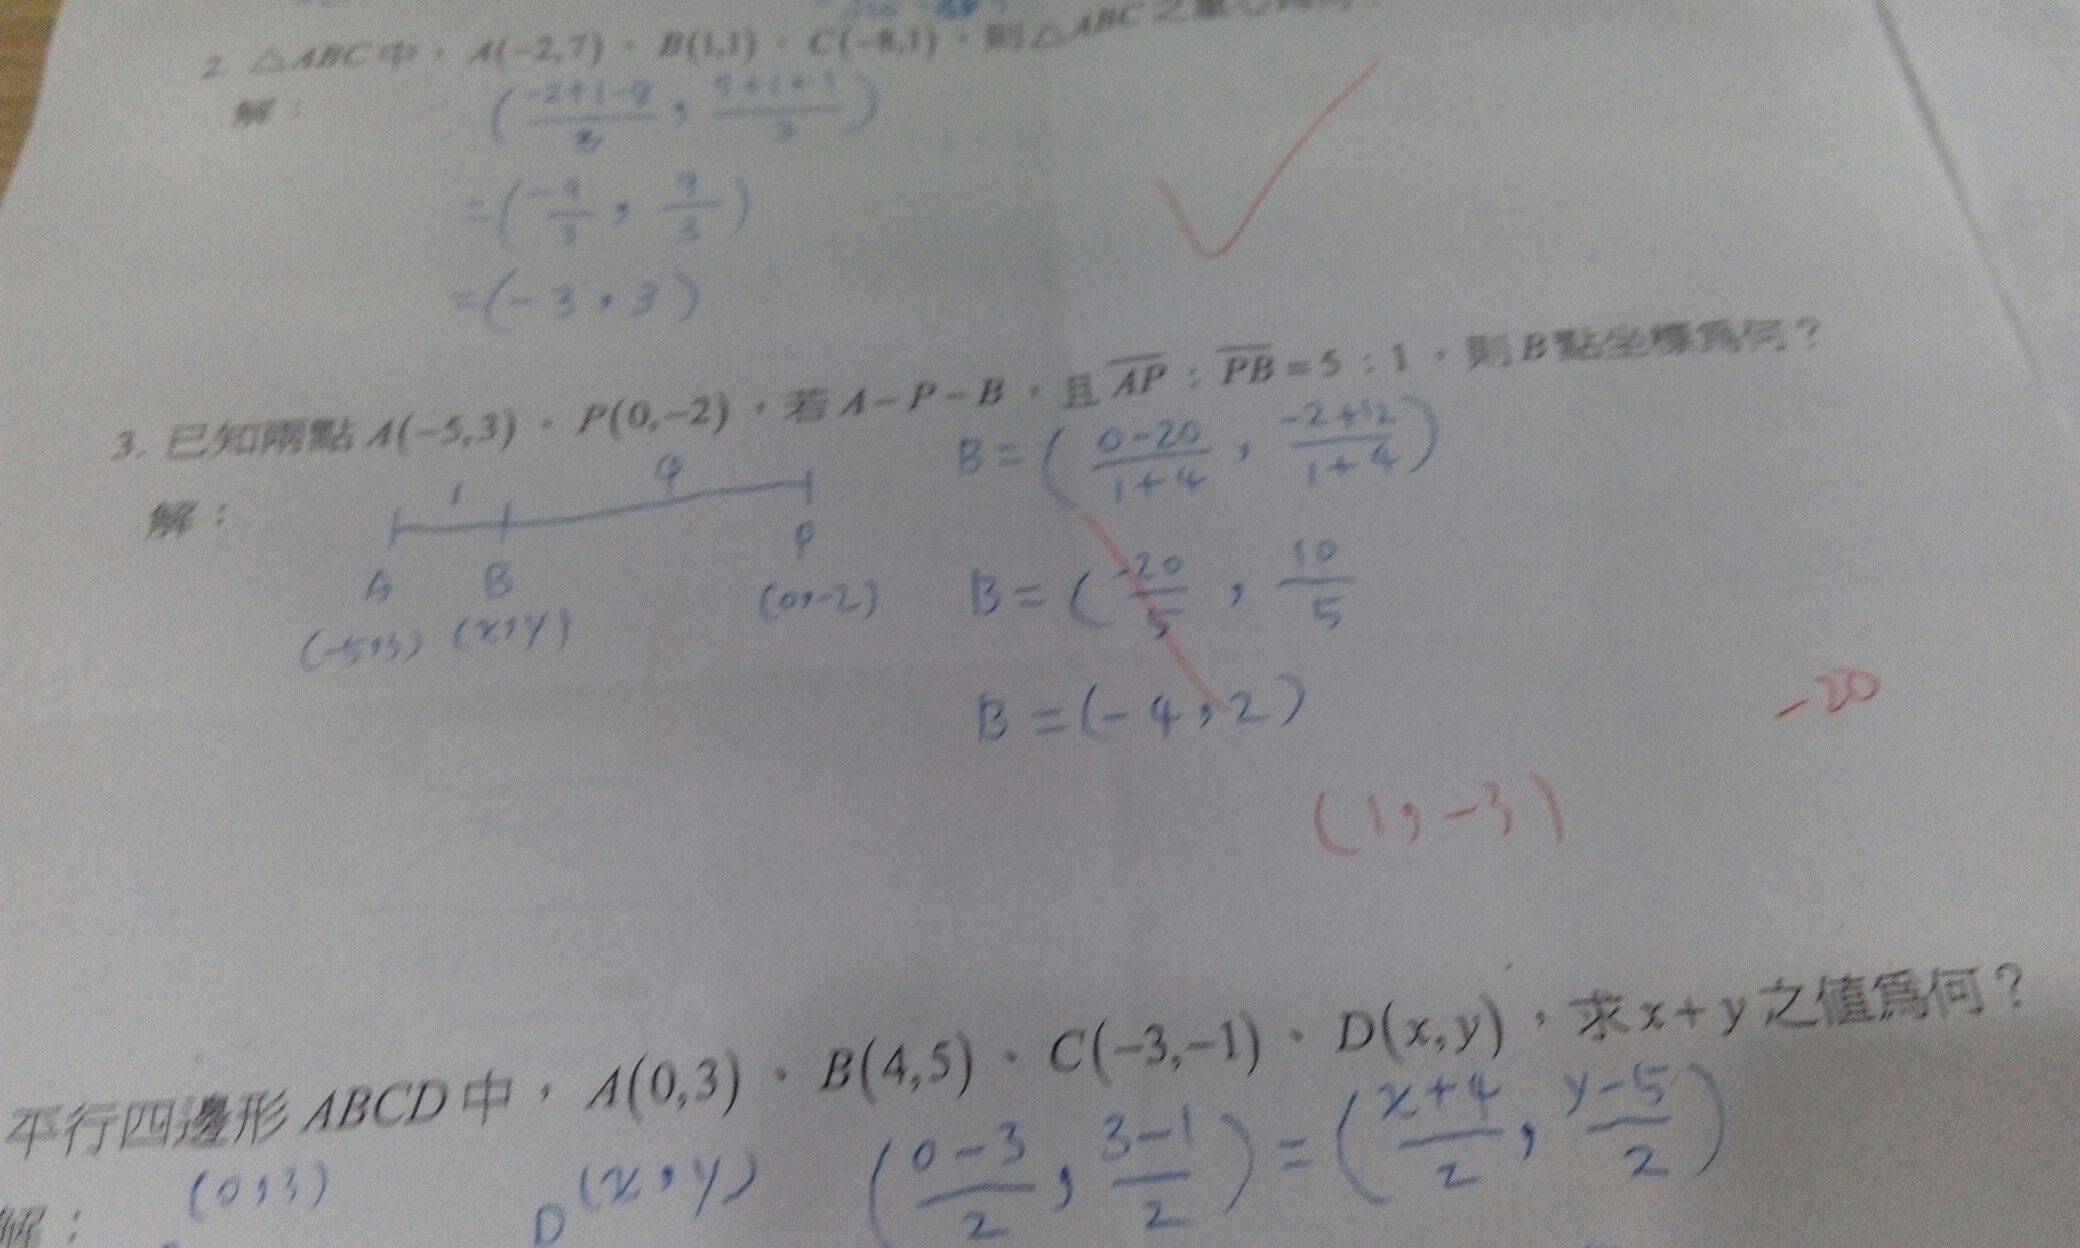 2. △ABC中，A(-2,7)、B(1,1)、C(-8,1)，則△ABC之重心為何？
解：
(\frac{-2+1-8}{3}, \frac{7+1+1}{3})
=(\frac{-9}{3}, \frac{9}{3})
=(-3, 3)
3. 已知兩點A(-5,3)、P(0,-2)，若A-P-B，且\overline{AP}：\overline{PB}=5：1，則B點坐標為何？
解：
1 4
A B P
(-5,3) (x,y) (0,-2)
B=(\frac{0-20}{1+4}, \frac{-2+12}{1+4})
B=(\frac{-20}{5}, \frac{10}{5}
B=(-4, 2)
-20
(1, -3)
平行四邊形ABCD中，A(0,3)、B(4,5)、C(-3,-1)、D(x,y)，求x+y之值為何？
解：
(0,3)
D(x,y)
(\frac{0-3}{2}, \frac{3-1}{2})=(\frac{x+4}{2}, \frac{y-5}{2})